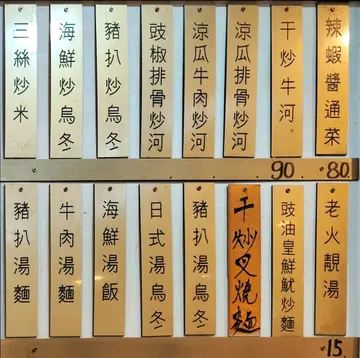 辣蝦醬通菜
干炒牛河
涼瓜排骨炒河
涼瓜牛肉炒河
豉椒排骨炒河
豬扒炒烏冬
海鮮炒烏冬
三絲炒米
80
90
老火靚湯
豉油皇鮮魷炒麵
干炒叉燒麵
豬扒湯烏冬
日式湯烏冬
海鮮湯飯
牛肉湯麵
豬扒湯麵
15